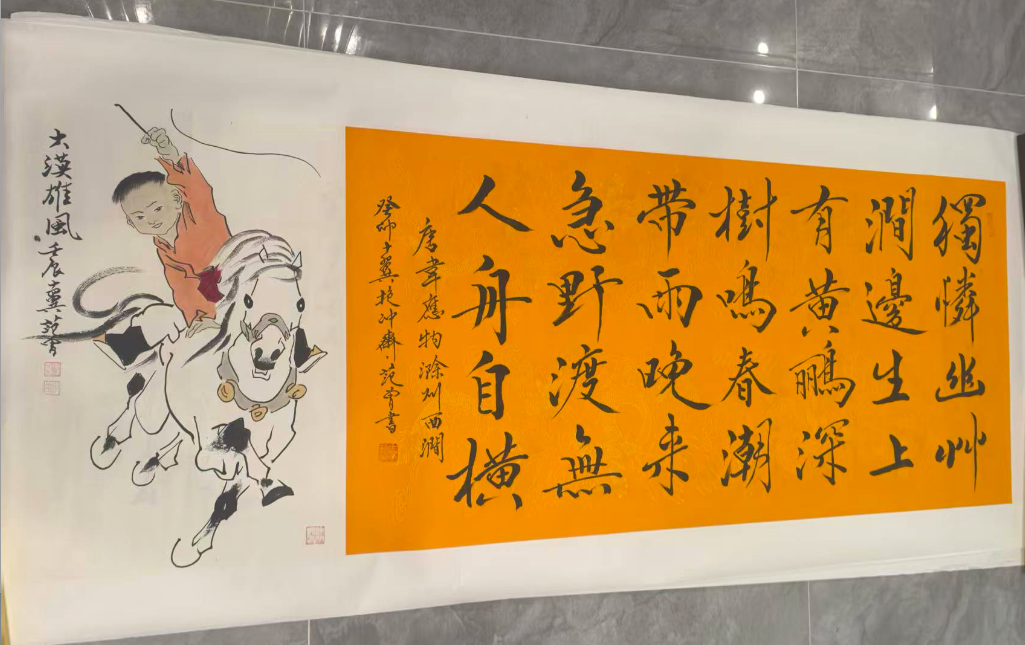 獨憐幽艸
澗邊生上
有黄鸝深
樹鳴春潮
帶雨晚来
急野渡無
人舟自橫
唐韋應物滁州西澗
癸卯十翼抱沖齋范曾書
大漠雄風壬辰十翼范曾